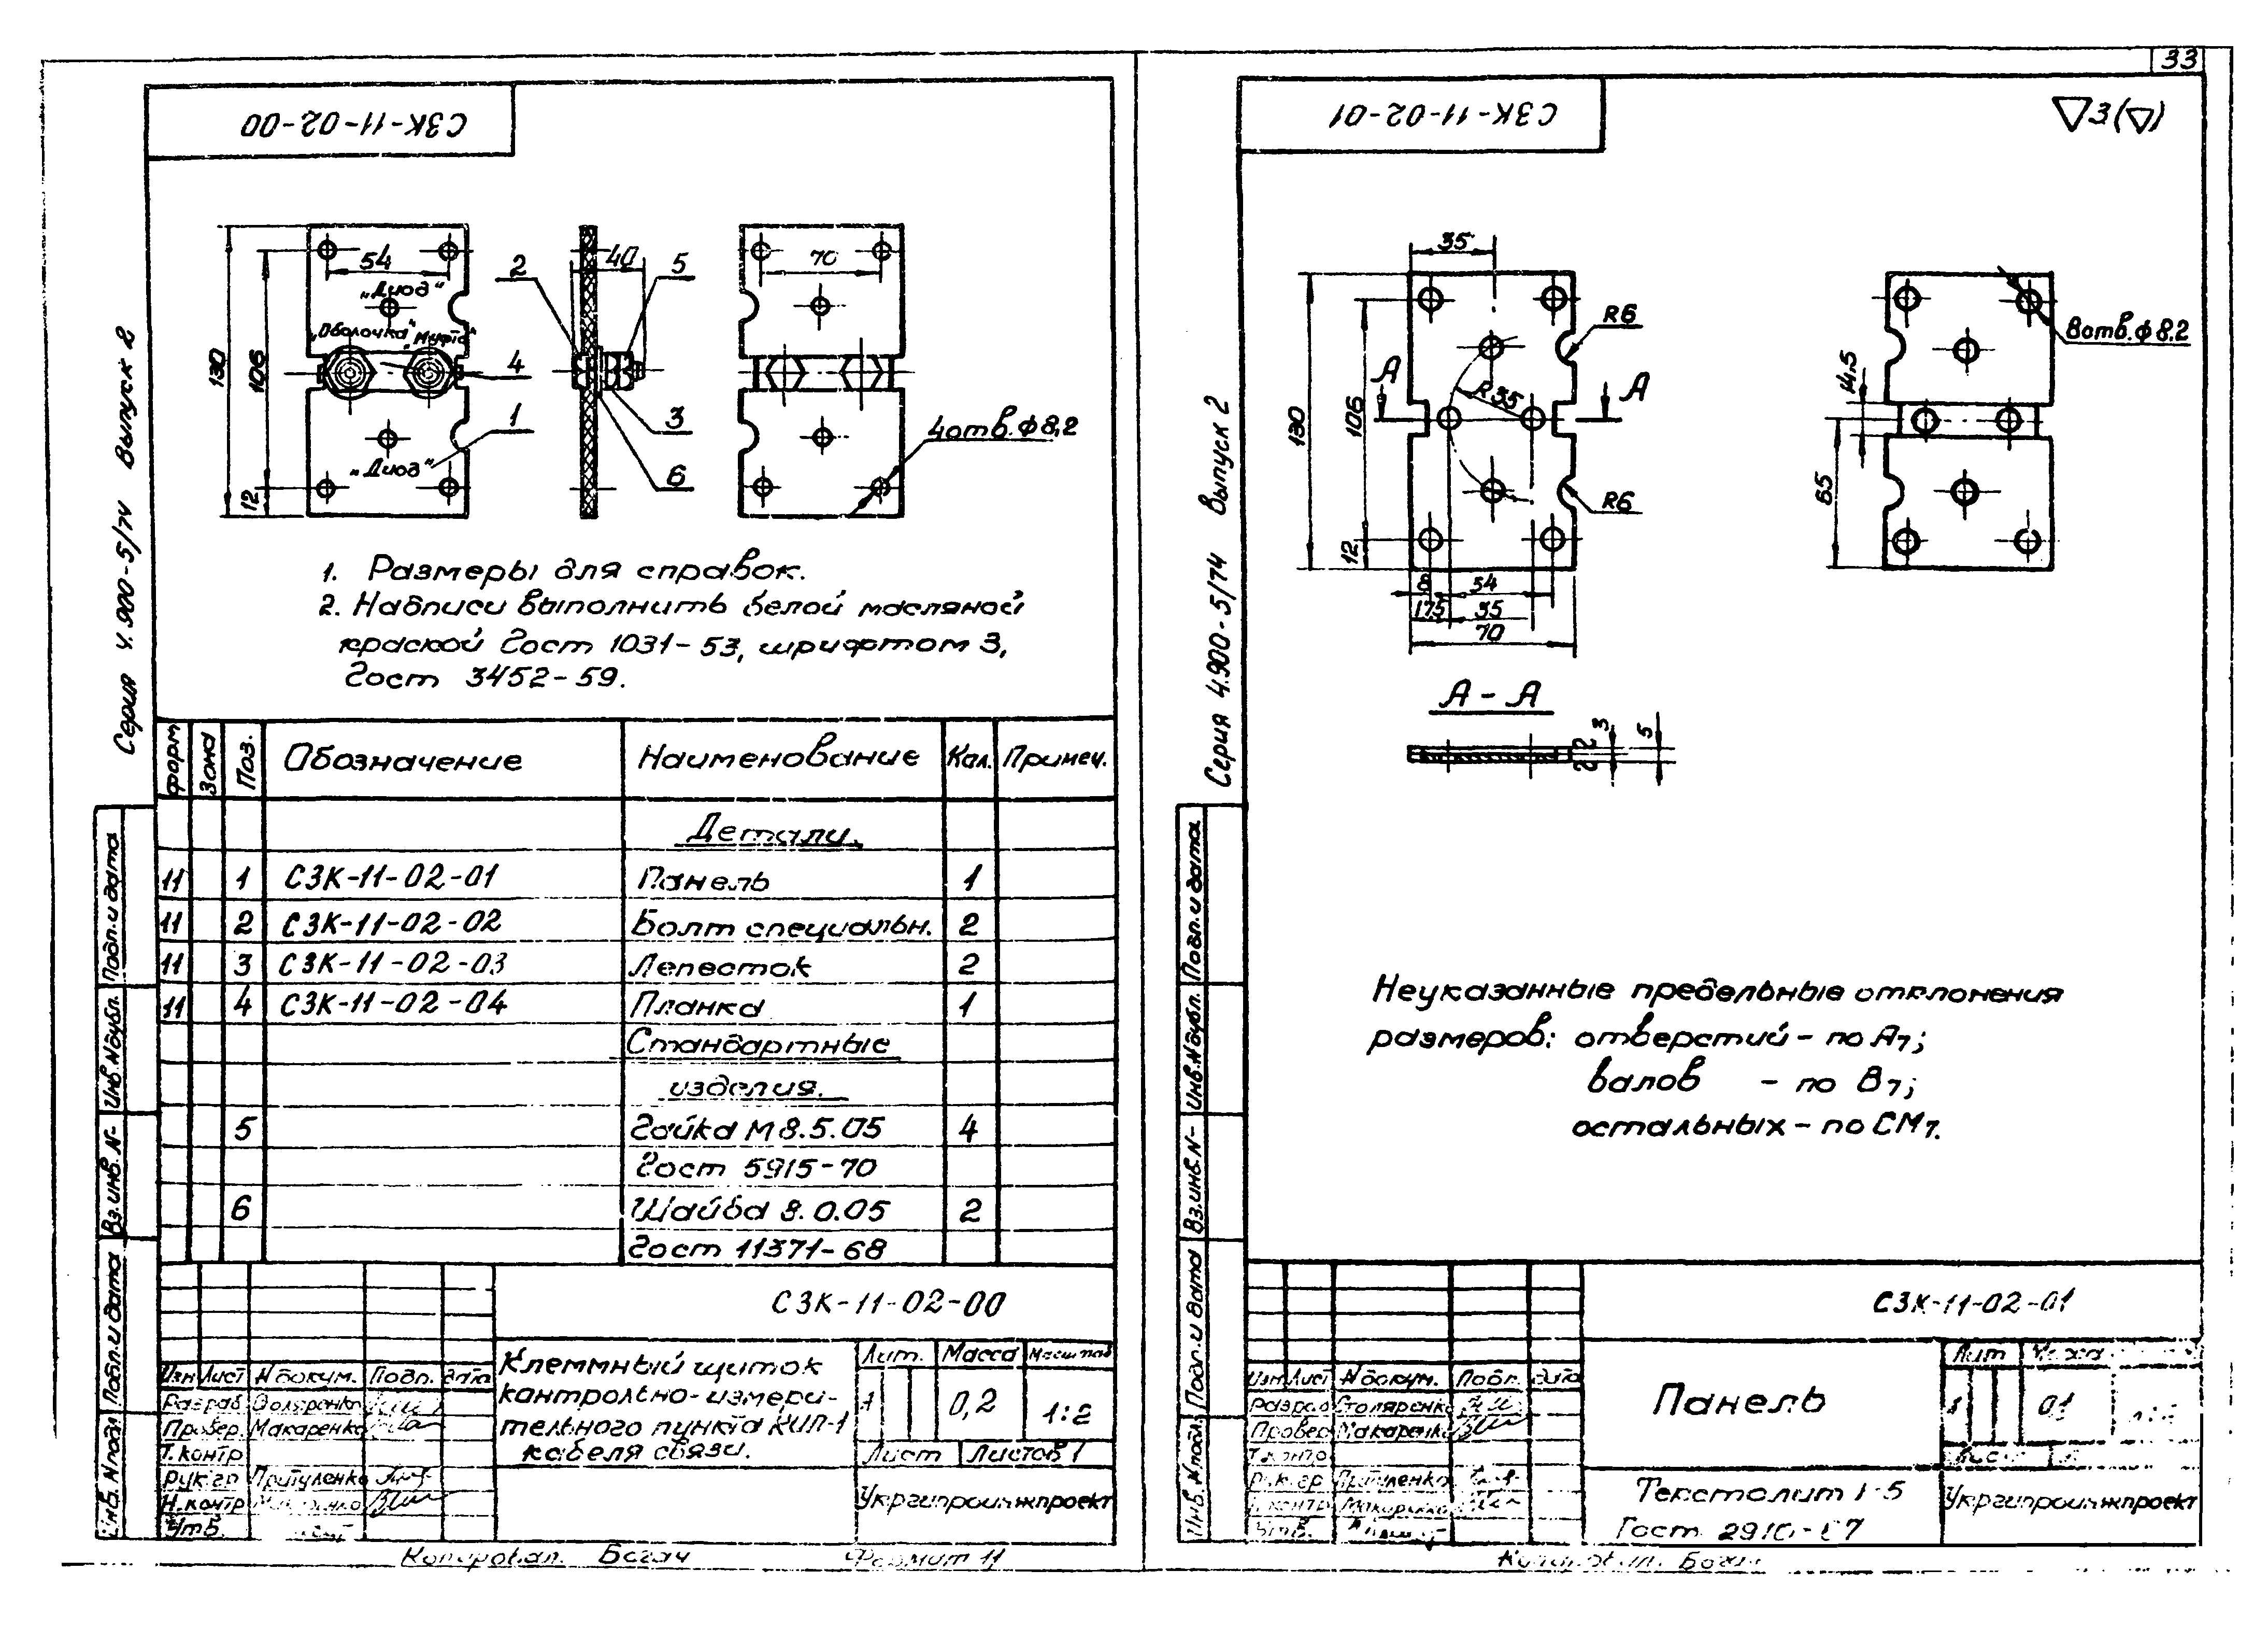 33
СЗК-11-02-00
54
„Диод“
„Оболочка“
„Муфта“
130
106
12
„Диод“
2
40
5
4
1
3
6
70
4отв.ф8,2
1. Размеры для справок.
2. Надписи выполнить белой масляной
краской Гост 1031-53, шрифтом 3,
Гост 3452-59.
Серия 4.900-5/74 Выпуск 2
форм Зона Поз. Обозначение Наименование Кол. Примеч.
Детали.
11 1 СЗК-11-02-01 Панель 1
11 2 СЗК-11-02-02 Болт специальн. 2
11 3 СЗК-11-02-03 Лепесток 2
11 4 СЗК-11-02-04 Планка 1
Стандартные
изделия.
5 Гайка М8.5.05 4
Гост 5915-70
6 Шайба 8.0.05 2
Гост 11371-68
Подп.и дата
Инв.Nдубл.
Вз.инв.N-
Подп.и дата
Инв.Nподл
СЗК-11-02-00
Изм Лист Nдокум. Подп. дата
Разраб Столяренко
Провер. Макаренко
Т.контр
Рук.гр Притуленко
Н.контр Макаренко
Утв.
Клеммный щиток
контрольно-измери-
тельного пункта КИП-1
кабеля связи.
Лит. Масса Масштаб
1 0,2 1:2
Лист Листов 1
Укргипроинжпроект
Копировал. Богач Формат 11
СЗК-11-02-01
▽3(▽)
35
R6
А А
R35
130
106
12
R6
8 54
17,5 35
70
8отв.ф8,2
14,5
65
А-А
3
5
Серия 4.900-5/74 Выпуск 2
Неуказанные предельные отклонения
размеров: отверстий - по А7;
валов - по В7;
остальных - по СМ7.
Подп.и дата
Инв.Nдубл.
Вз.инв.N-
Подп.и дата
Инв.Nподл.
СЗК-11-02-01
Изм Лист Nдокум. Подп. дата
Разраб Столяренко
Провер Макаренко
Т.контр
Рук.гр Притуленко
Н.контр Макаренко
Утв.
Панель
Лит Масса
1 0,1
Лист
Текстолит 1-5
Гост 2910-67
Укргипроинжпроект
Копировал. Богач